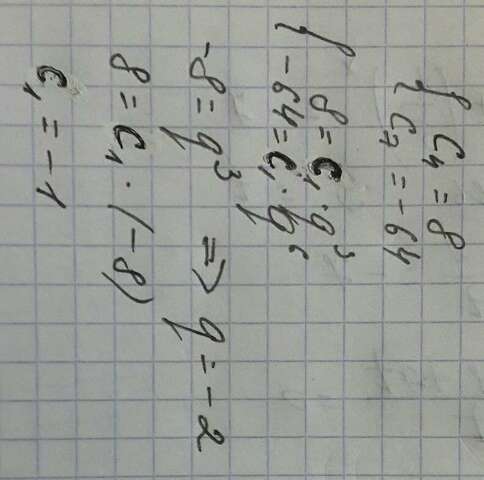 { c₄ = 8
c₇ = -64
{ 8 = c₁ · q³
-64 = c₁ · q⁶
-8 = q³ => q = -2
8 = c₁ · (-8)
c₁ = -1